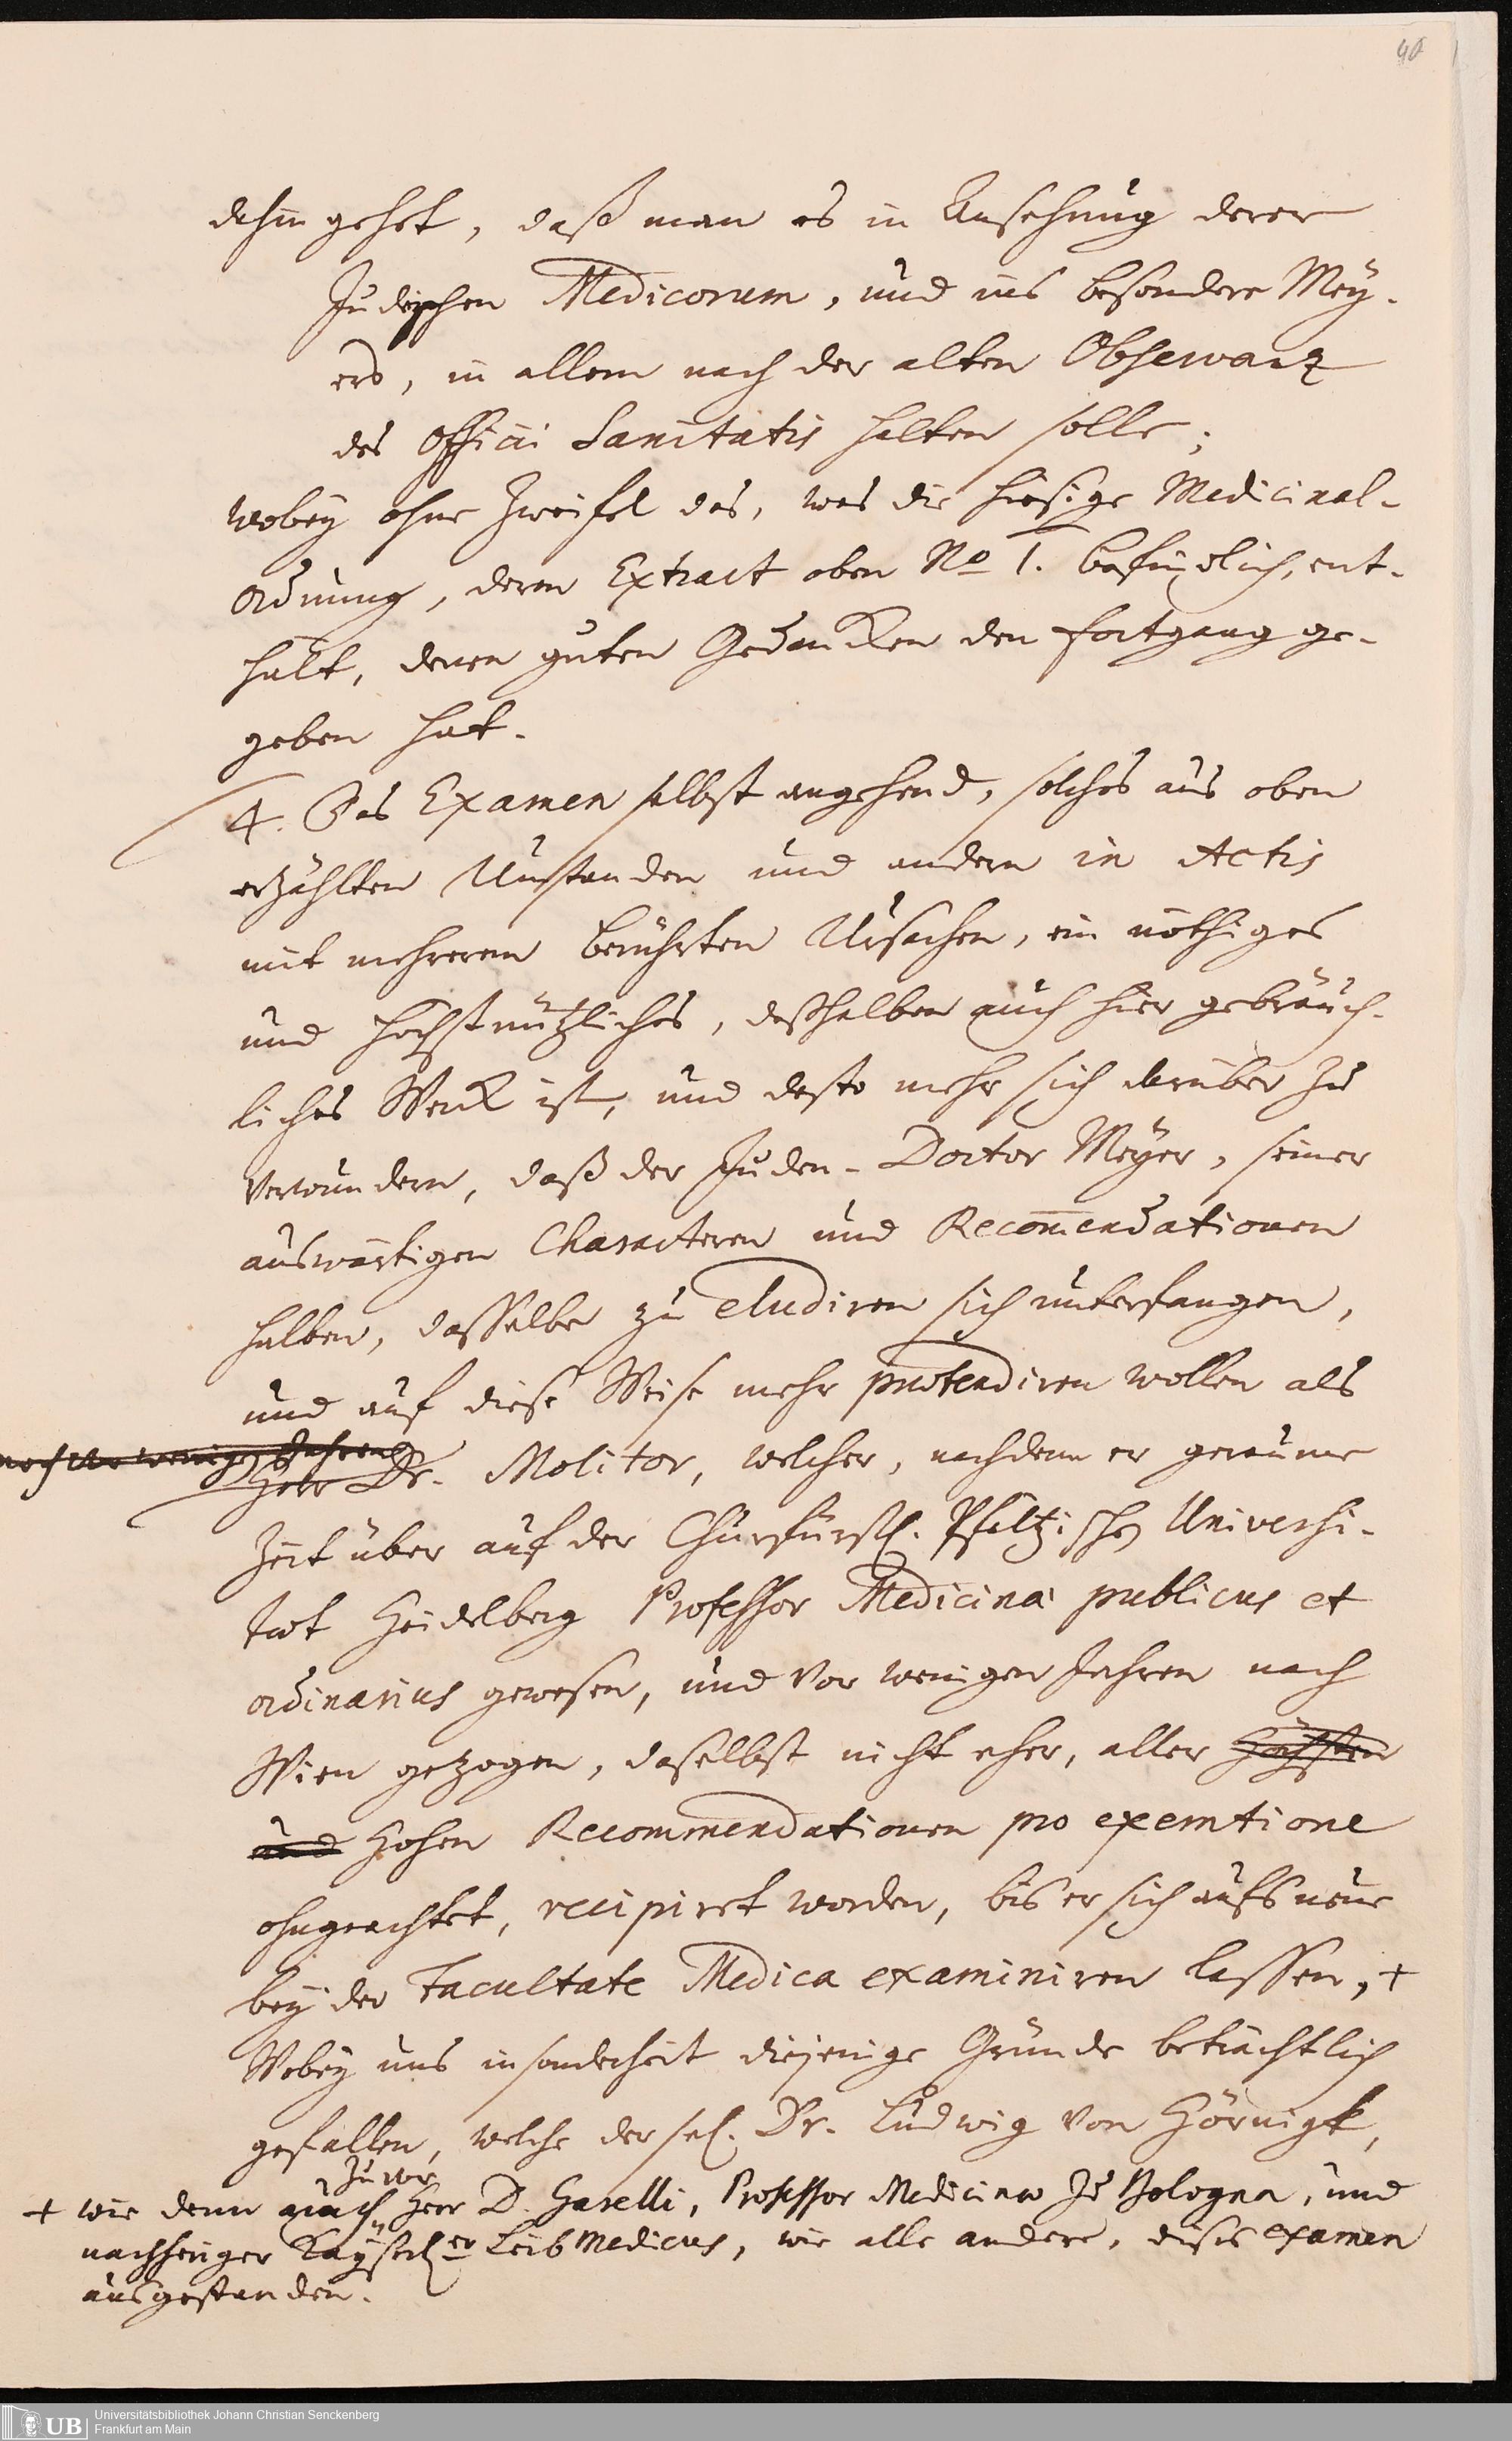 40
dahin gehet, daß man es in Ansehung derer
Jüdischen Medicorum, und ins besondere Mey-
ers, in allem nach der alten Observanz
des Officii Sanitatis halten solle;
wobey ohne Zweifel das, was die hiesige Medicinal-
Ordnung, deren Extract oben No 1. befindlich, ent-
hält, denen guten Gedancken den Fortgang ge-
geben hat.
4. Das Examen selbst angehend, solches aus oben
erzählten Umstanden und andern in Actis
mit mehrerem berührten Ursachen, ein nöthiges
und höchstnützliches, deßhalben auch hier gebräuch-
liches Werck ist, und desto mehr sich darüber zu
verwundern, daß der Juden-Doctor Meyer, seiner
auswärtigen Characteren und Recom̅endationen
halben, dasselbe zu eludiren sich unterfangen,
und auf diese Weise mehr prætendiren wollen als
noch vor wenigen Jahren
Herr Dr. Molitor, welcher, nachdem er geraume
Zeit über auf der Churfürstl. Pfältzischen Universi-
tæt Heidelberg Professor Medicinæ publicus et
ordinarius gewesen, und vor wenigen Jahren nach
Wien gezogen, daselbst nicht eher, aller höchsten
und hohen Recommendationen pro exemtione
ohngeachtet, recipiret worden, bis er sich aufs neue
bey der Facultate Medica examiniren lassen, +
Wobey uns insonderheit diejenige Gründe beträchtlich
gefallen, welche der sel. Dr. Ludwig von Hörnigk,
zuvor
+ wie denn auch Herr D. Garelli, Professor Medicinæ zu Bologna, und
nachheriger Kayserl.er Leib Medicus, wie alle andere, dieses examen
ausgestanden.
UB
Universitätsbibliothek Johann Christian Senckenberg
Frankfurt am Main